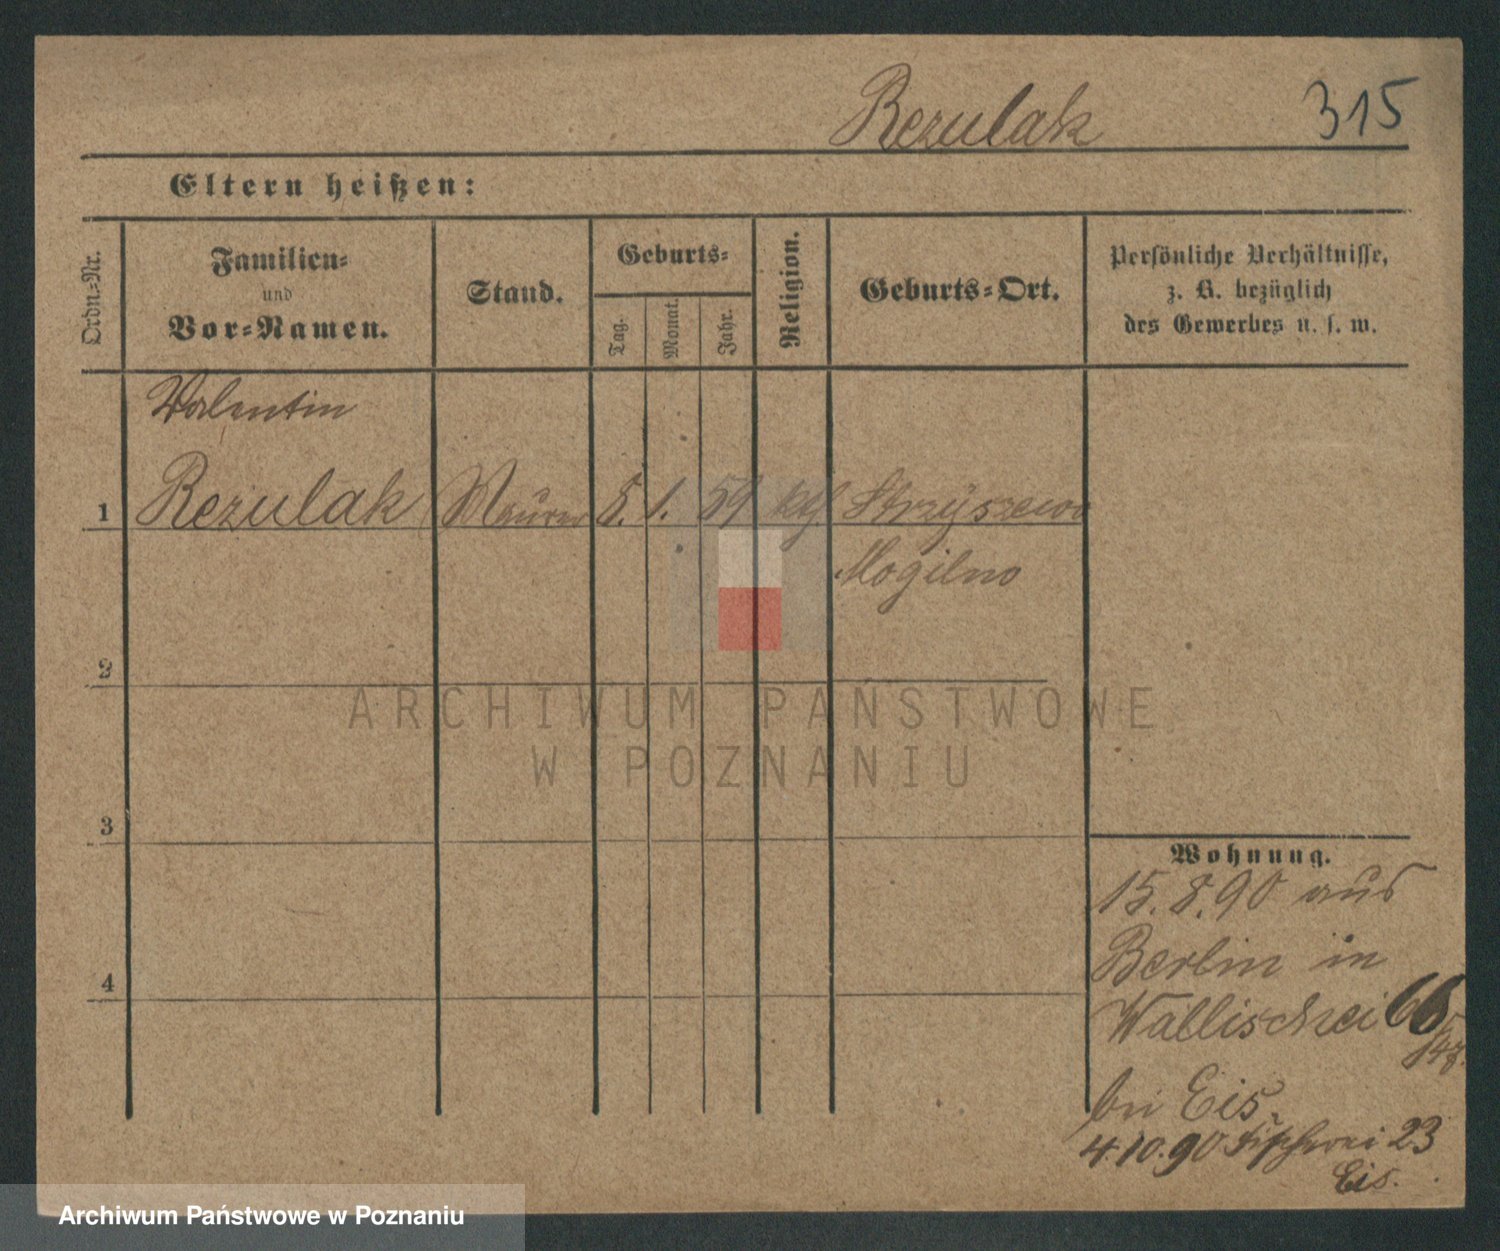 Rezulak 315
Eltern heißen:
Ordn.-Nr.
Familien-
und
Vor-Namen.
Stand.
Geburts-
Tag.
Monat.
Jahr.
Religion.
Geburts-Ort.
Persönliche Verhältnisse,
z. B. bezüglich
des Gewerbes u. s. w.
Valentin
1 Rezulak Maurer 5. 1. 59 ktl. Skrzyszewo
Mogilno
2
3
4
ARCHIWUM PAŃSTWOWE
W POZNANIU
Wohnung.
15.8.90 aus
Berlin in
Wallischei 66
bei Eis.
4.10.90 Fischerei 23
Eis.
Archiwum Państwowe w Poznaniu